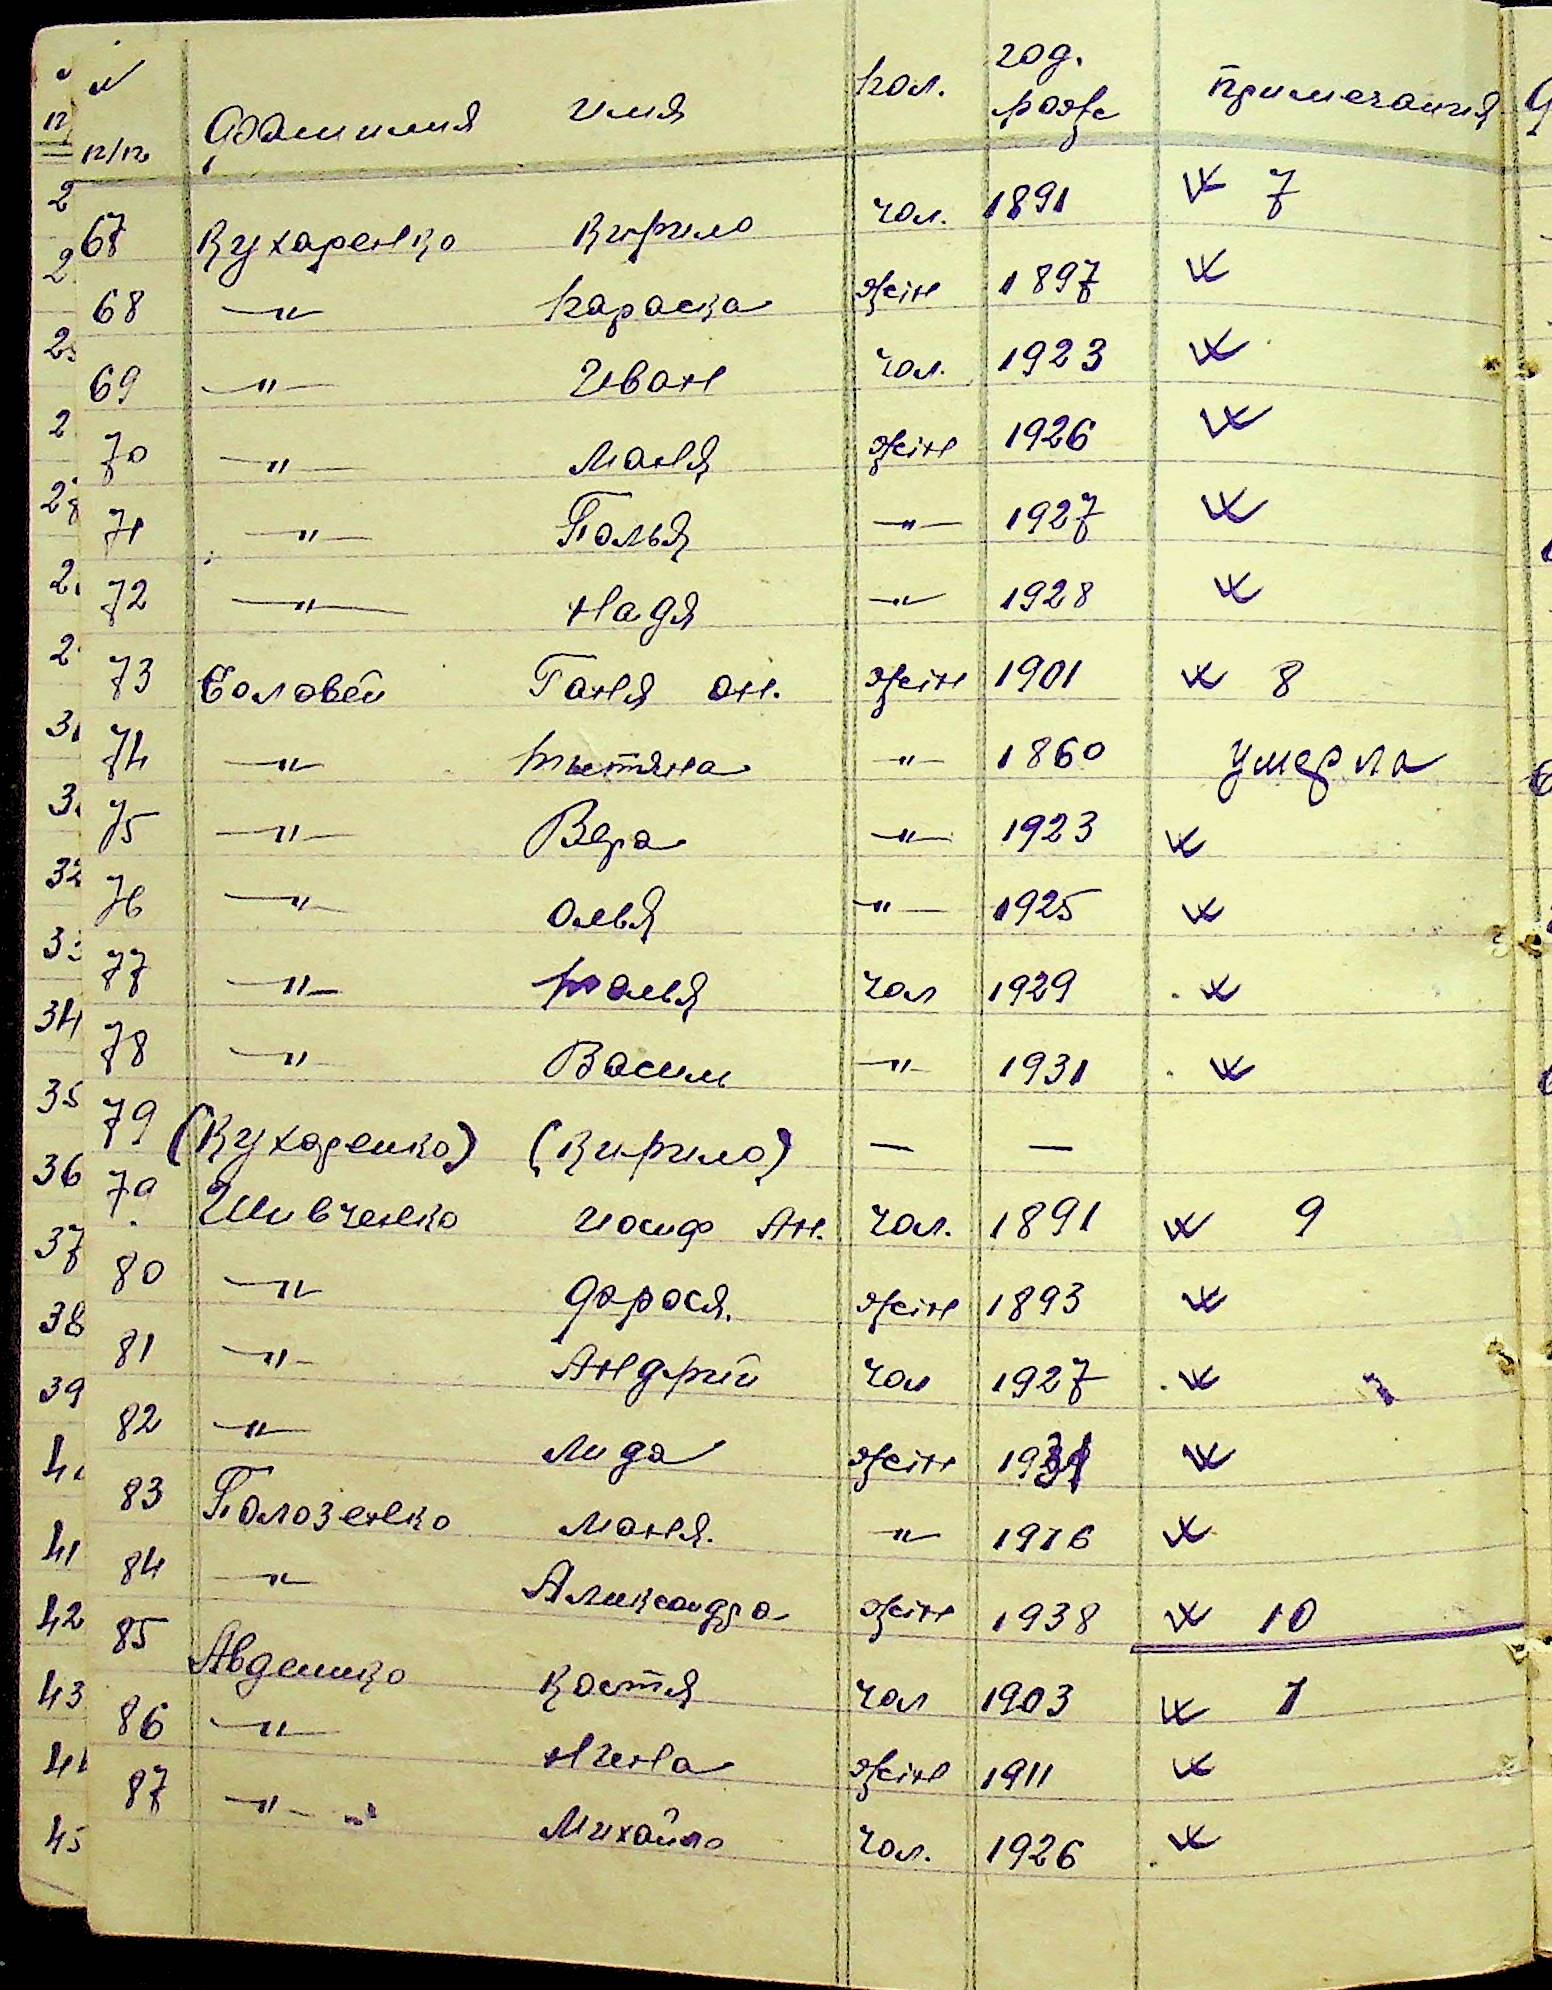 № п/п Фамилия имя пол. год. рожд Примечания
67 Кухаренко Кирило чол. 1891 7
68 —"— Параска жін 1897
69 —"— Иван чол. 1923
70 —"— Маня жін 1926
71 —"— Полья —"— 1927
72 —"— Надя —"— 1928
73 Соловей Ганя Ан. жін 1901 8
74 —"— —"— 1860 умерла
75 —"— Вера —"— 1923
76 —"— Олья —"— 1925
77 —"— чол 1929
78 —"— Васил —"— 1931
79 (Кухаренко) (Кирило) — —
79 Шивченко Иосиф Ан. чол. 1891 9
80 —"— Фрося. жін 1893
81 —"— Андрий чол 1927
82 —"— Лида жін
83 Полозенко Маня. —"— 1916
84 —"— Александра жін 1938 10
85 Авденко Костя чол 1903 1
86 —"— Нина жін 1911
87 —"— Михайло чол. 1926